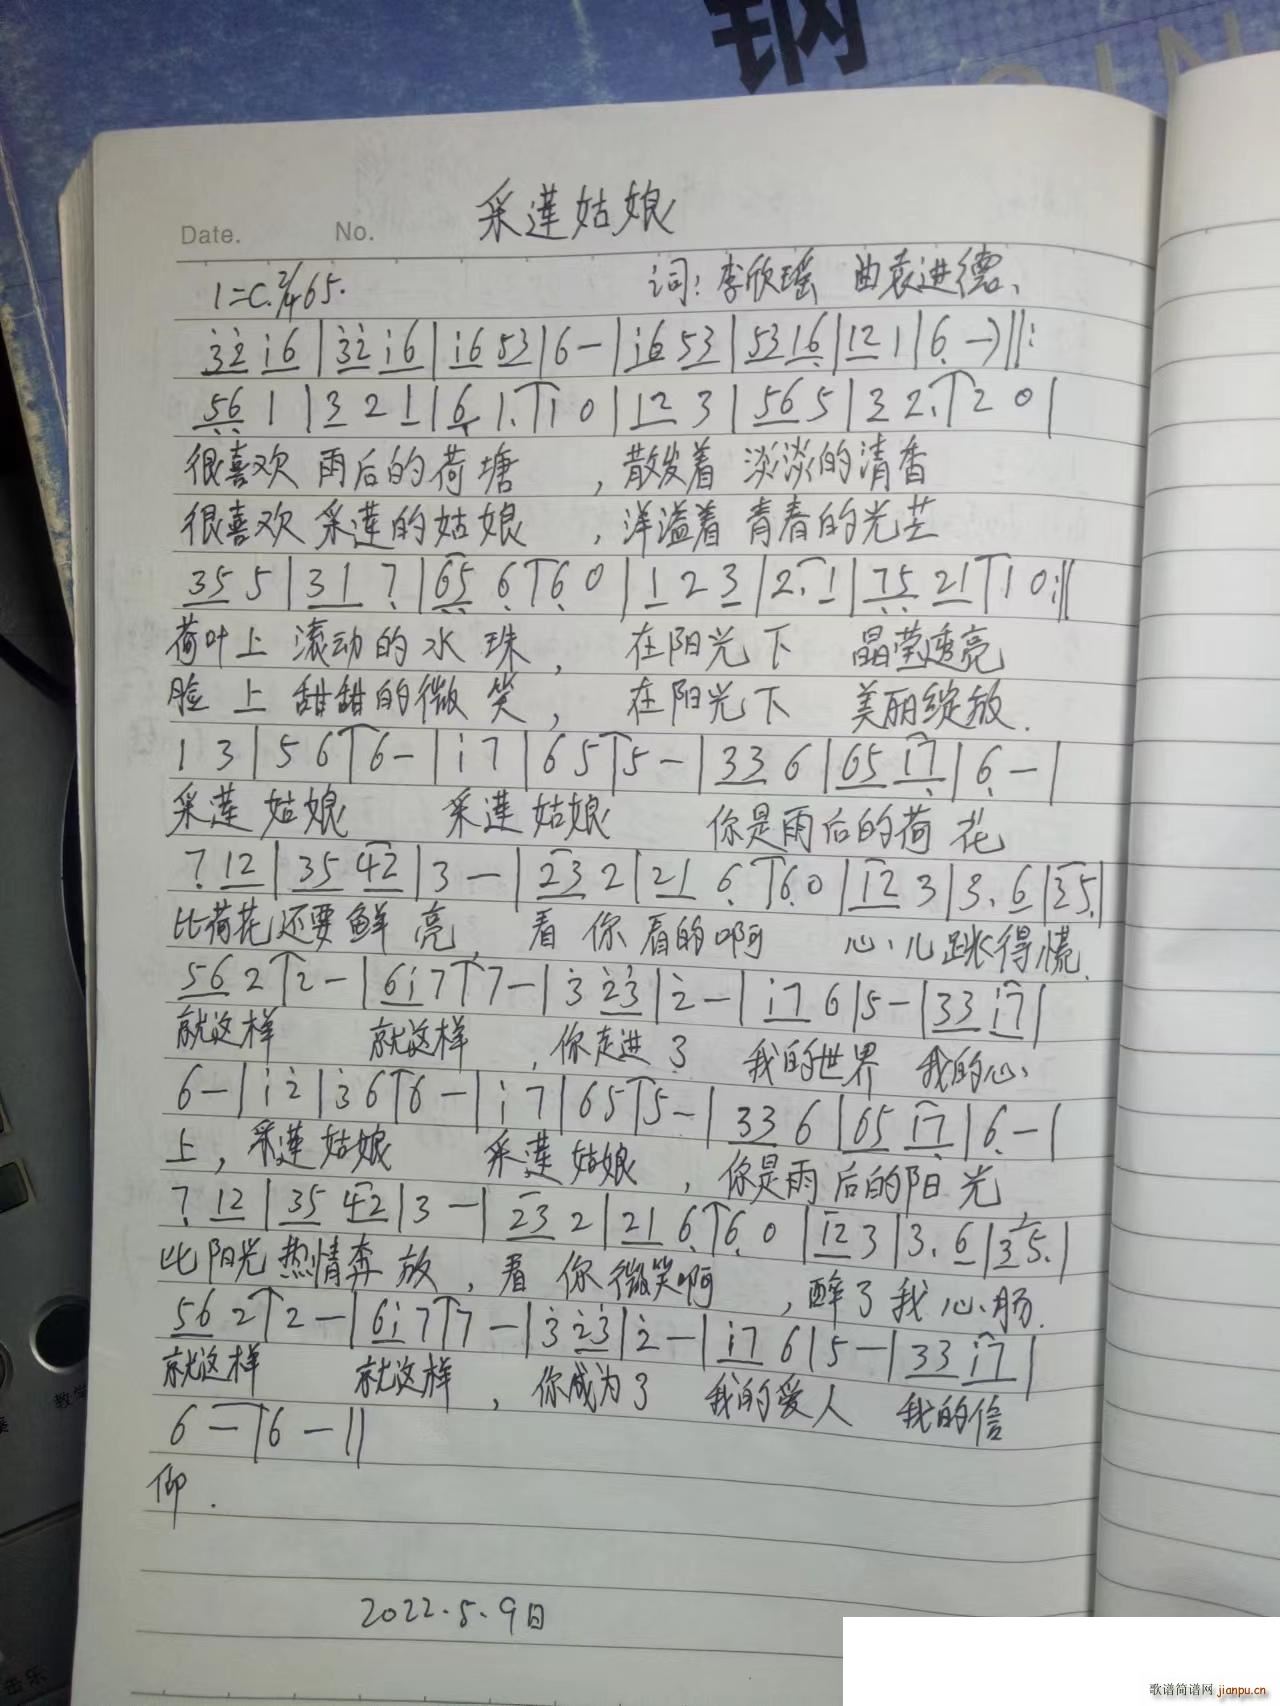 钢
采莲姑娘
Date. No.
1=C 2/4 65.
词:李欣瑶 曲袁进德、
3̇2̇ i6 | 3̇2̇ i6 | i6 53 | 6 — | i6 53 | 53 16 | 12 1 | 6 —) ‖:
56 1 | 3 2 1 | 6 1. | 1 0 | 12 3 | 56 5 | 3 2. | 2 0 |
很喜欢 雨后的荷塘 ,散发着 淡淡的清香
很喜欢 采莲的姑娘 ,洋溢着 青春的光芒
35 5 | 31 7 | 65 6 | 6 0 | 1 2 3 | 2. 1 | 75 21 | 1 0 :‖
荷叶上 滚动的水珠, 在阳光下 晶莹透亮
脸上 甜甜的微笑, 在阳光下 美丽绽放.
1 3 | 5 6 | 6 — | i 7 | 6 5 | 5 — | 33 6 | 65 i7 | 6 — |
采莲 姑娘 采莲姑娘 你是雨后的荷花
7 12 | 35 42 | 3 — | 23 2 | 21 6 | 6 0 | 12 3 | 3. 6 | 35. |
比荷花还要鲜亮, 看你看的啊 心儿跳得慌.
56 2 | 2 — | 6i 7 | 7 — | 3̇ 2̇3̇ | 2̇ — | i7 6 | 5 — | 33 i7 |
就这样 就这样 ,你走进了 我的世界 我的心
6 — | i 2̇ | 3̇ 6 | 6 — | i 7 | 65 | 5 — | 33 6 | 65 i7 | 6 — |
上,采莲姑娘 采莲姑娘 ,你是雨后的阳光
7 12 | 35 42 | 3 — | 23 2 | 21 6 | 6 0 | 12 3 | 3. 6 | 35. |
比阳光热情奔放,看你微笑啊 ,醉了我心肠.
56 2 | 2 — | 6i 7 | 7 — | 3̇ 2̇3̇ | 2̇ — | i7 6 | 5 — | 33 i7 |
就这样 就这样 ,你成为了 我的爱人 我的信
6 — | 6 — ‖
仰.
2022.5.9日
音乐
歌谱简谱网 jianpu.cn